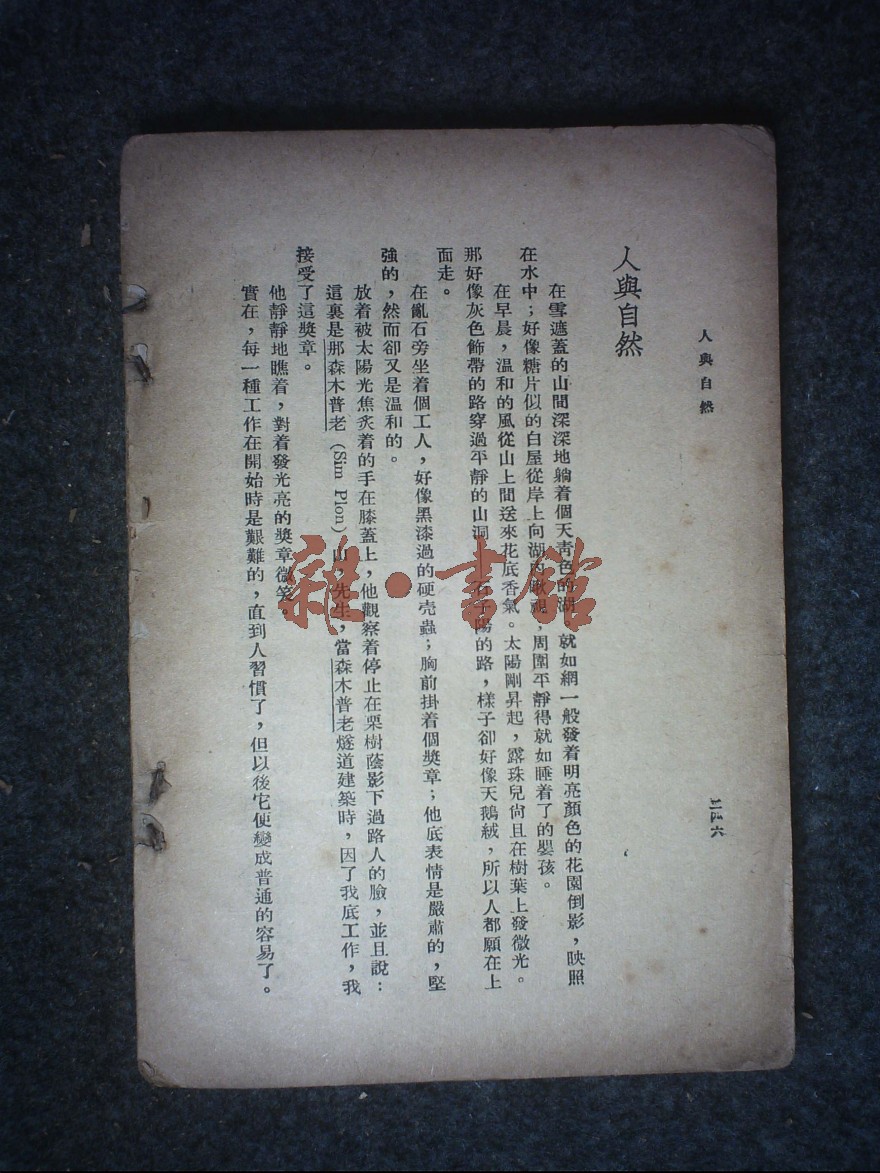 人與自然
二四六
人與自然
在雪遮蓋的山間深深地躺着個天靑色的湖。就如網一般發着明亮顏色的花園倒影，映照
在水中；好像糖片似的白屋從岸上向湖內瞅視，周圍平靜得就如睡着了的嬰孩。
在早晨，溫和的風從山上間送來花底香氣。太陽剛昇起，露珠兒尙且在樹葉上發微光。
那好像灰色飾帶的路穿過平靜的山洞 石子陽的路，樣子卻好像天鵝絨，所以人都願在上
面走。
在亂石旁坐着個工人，好像黑漆過的硬壳蟲；胸前掛着個獎章；他底表情是嚴肅的，堅
強的，然而卻又是溫和的。
放着被太陽光焦炙着的手在膝蓋上，他觀察着停止在栗樹蔭影下過路人的臉，並且說：
這裏是那森木普老(Sim Plon)山，先生，當森木普老燧道建築時，因了我底工作，我
接受了這獎章。
他靜靜地瞧着，對着發光亮的獎章微笑。
實在，每一種工作在開始時是艱難的，直到人習慣了，但以後它便變成普通的容易了。
雜·書館